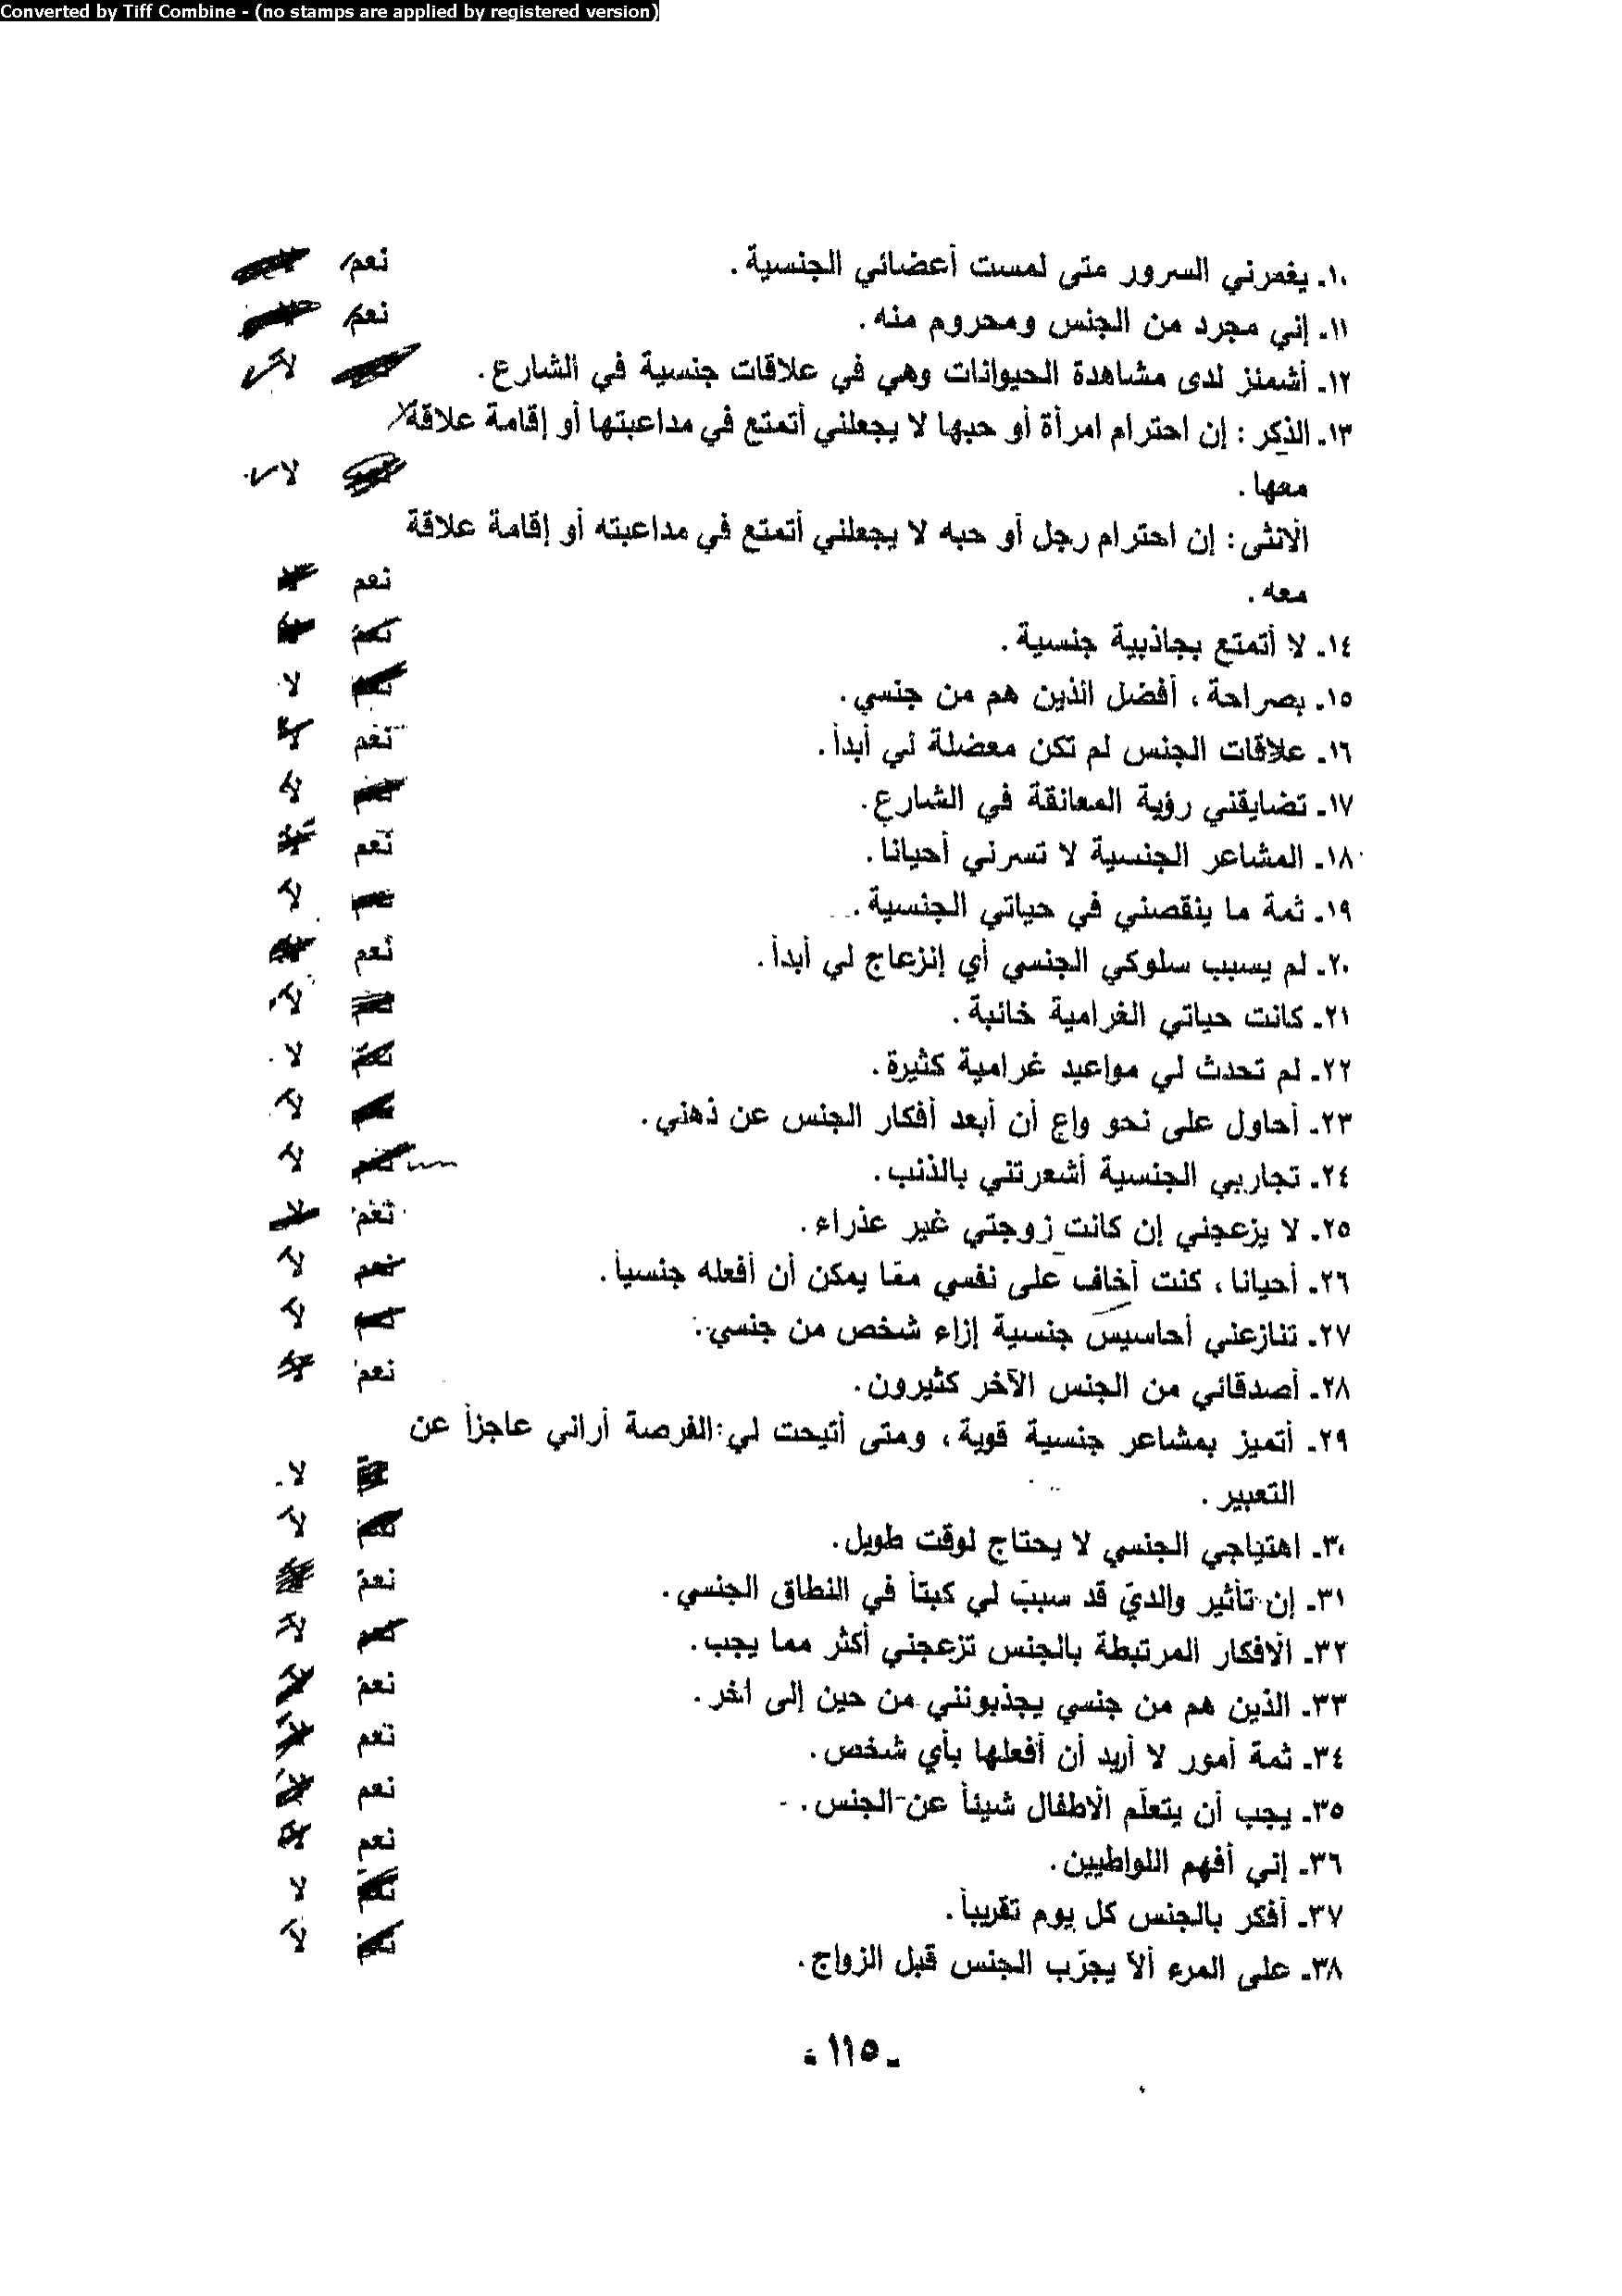 Converted by Tiff Combine - (no stamps are applied by registered version)
١٠ـ يغمرني السرور متى لمست أعضائي الجنسية. نعم
١١ـ إني مجرد من الجنس ومحروم منه. نعم
١٢ـ أشمئز لدى مشاهدة الحيوانات وهي في علاقات جنسية في الشارع. لا
١٣ـ الذكر: إن احترام امرأة أو حبها لا يجعلني أتمتع في مداعبتها أو إقامة علاقة
معها. لا
الأنثى: إن احترام رجل أو حبه لا يجعلني أتمتع في مداعبته أو إقامة علاقة
معه. نعم
١٤ـ لا أتمتع بجاذبية جنسية. نعم
١٥ـ بصراحة، أفضل الذين هم من جنسي. نعم لا
١٦ـ علاقات الجنس لم تكن معضلة لي أبداً. نعم لا
١٧ـ تضايقني رؤية المعانقة في الشارع. نعم لا
١٨ـ المشاعر الجنسية لا تسرني أحيانا. نعم لا
١٩ـ ثمة ما ينقصني في حياتي الجنسية. نعم لا
٢٠ـ لم يسبب سلوكي الجنسي أي إنزعاج لي أبداً. نعم
٢١ـ كانت حياتي الغرامية خائبة. نعم لا
٢٢ـ لم تحدث لي مواعيد غرامية كثيرة. نعم لا
٢٣ـ أحاول على نحو واع أن أبعد أفكار الجنس عن ذهني. لا
٢٤ـ تجاربي الجنسية أشعرتني بالذنب. نعم لا
٢٥ـ لا يزعجني إن كانت زوجتي غير عذراء. نعم لا
٢٦ـ أحيانا، كنت أخاف على نفسي ممّا يمكن أن أفعله جنسياً. نعم لا
٢٧ـ تنازعني أحاسيس جنسية إزاء شخص من جنسي. نعم لا
٢٨ـ أصدقائي من الجنس الآخر كثيرون. نعم لا
٢٩ـ أتميز بمشاعر جنسية قوية، ومتى أتيحت لي الفرصة أراني عاجزاً عن
التعبير. لا
٣٠ـ اهتياجي الجنسي لا يحتاج لوقت طويل. نعم لا
٣١ـ إن تأثير والديّ قد سببَ لي كبتاً في النطاق الجنسي. نعم
٣٢ـ الأفكار المرتبطة بالجنس تزعجني أكثر مما يجب. نعم لا
٣٣ـ الذين هم من جنسي يجذبونني من حين إلى آخر. نعم لا
٣٤ـ ثمة أمور لا أريد أن أفعلها بأي شخص. نعم لا
٣٥ـ يجب أن يتعلّم الأطفال شيئاً عن الجنس. نعم لا
٣٦ـ إني أفهم اللواطيين. نعم لا
٣٧ـ أفكر بالجنس كل يوم تقريباً. نعم لا
٣٨ـ على المرء ألاّ يجرّب الجنس قبل الزواج. نعم لا
ـ ١١٥ ـ